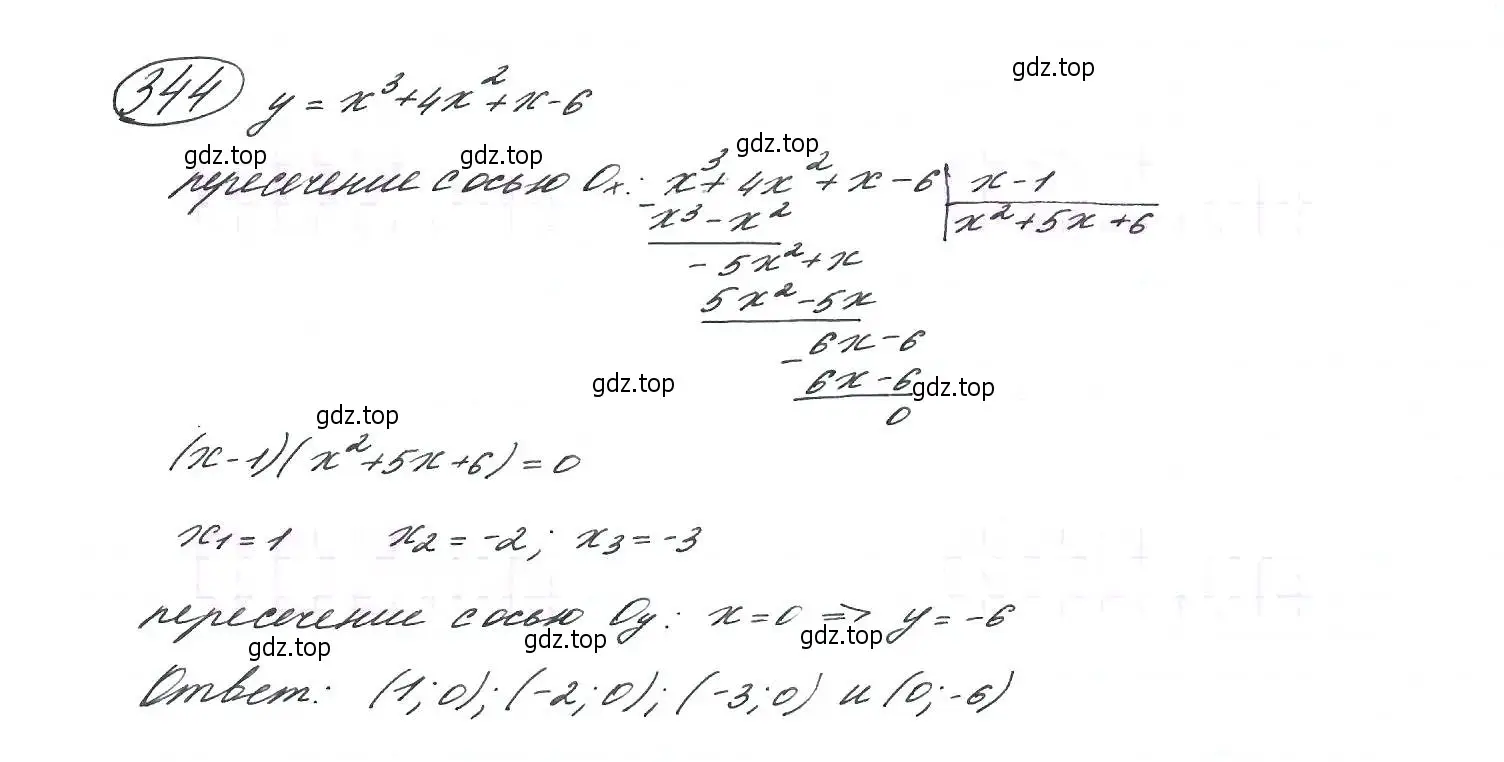 344 y = x³ + 4x² + x - 6
gdz.top
gdz.top gdz.top gdz.top
пересечение с осью Ox: x³ + 4x² + x - 6 | x - 1
x³ - x² | x² + 5x + 6
- 5x² + x
5x² - 5x
- 6x - 6
6x - 6
gdz.top gdz.top
0
gdz.top
(x - 1)(x² + 5x + 6) = 0
x₁ = 1 x₂ = -2; x₃ = -3
пересечение с осью Oy: x = 0 => y = -6
gdz.top gdz.top gdz.top
Ответ: (1; 0); (-2; 0); (-3; 0) и (0; -6)